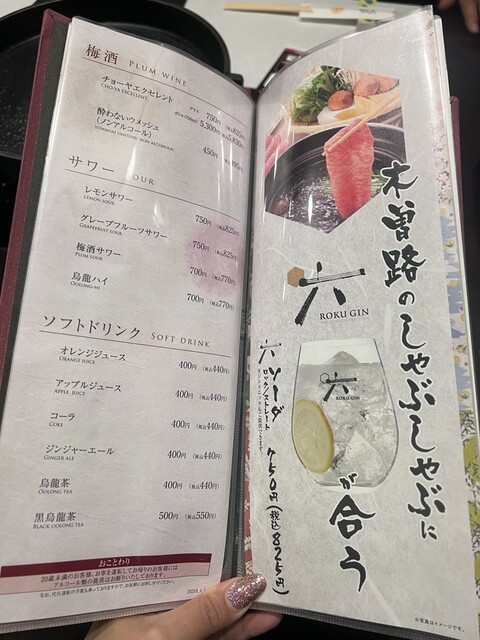 梅酒 PLUM WINE
チョーヤエクセレント
CHOYA EXCELLENT
グラス 750円 (税込825円)
5,300円 (税込5,830円)
酔わないウメッシュ
(ノンアルコール)
450円
サワー SOUR
レモンサワー
LEMON SOUR
750円 (税込825円)
グレープフルーツサワー
GRAPEFRUIT SOUR
750円 (税込825円)
梅酒サワー
PLUM SOUR
700円 (税込770円)
烏龍ハイ
OOLONG-HI
700円 (税込770円)
ソフトドリンク SOFT DRINK
オレンジジュース
ORANGE JUICE
400円 (税込440円)
アップルジュース
APPLE JUICE
400円 (税込440円)
コーラ
COKE
400円 (税込440円)
ジンジャーエール
GINGER ALE
400円 (税込440円)
烏龍茶
OOLONG TEA
400円 (税込440円)
黒烏龍茶
BLACK OOLONG TEA
500円 (税込550円)
おことわり
20歳未満のお客様、お車を運転してお帰りのお客様には
アルコール類の提供はお断りいたしております。
木曽路のしゃぶしゃぶに
六
ROKU GIN
六
ROKU GIN
六ソーダ
ロック/ストレート
750円(税込825円)
が合う
※写真はイメージです。